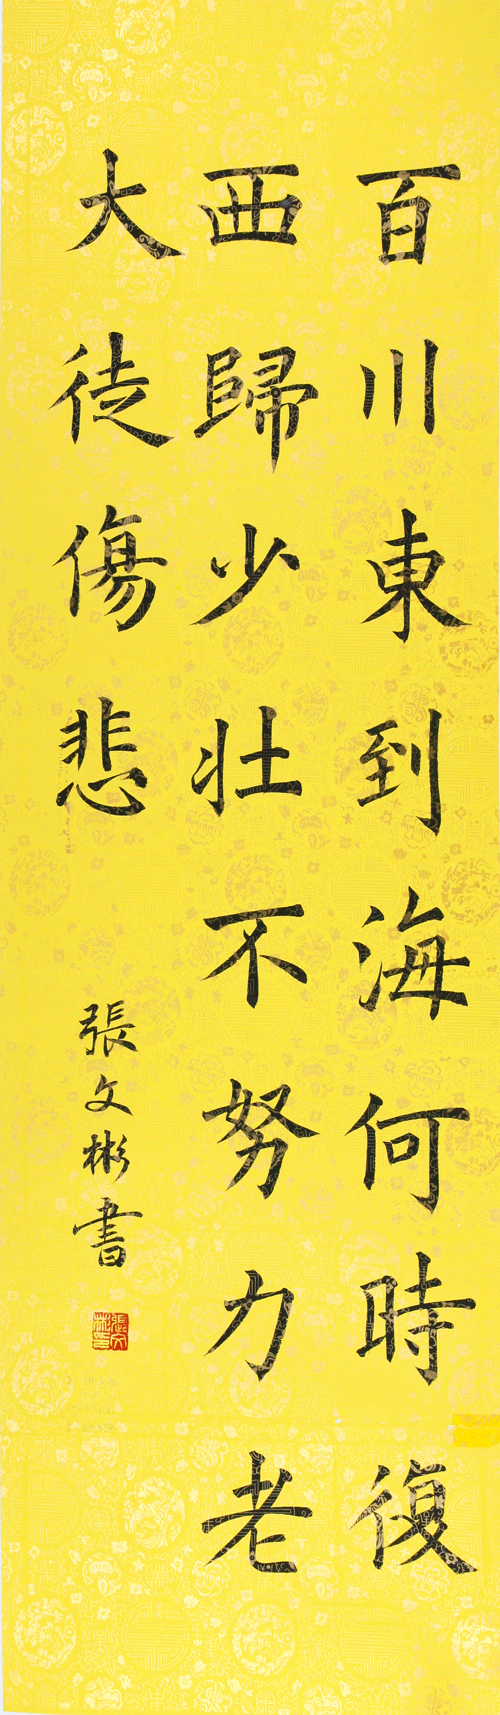 百川東到海何時復
西歸少壯不努力老
大徒傷悲
張文彬書
張文彬印